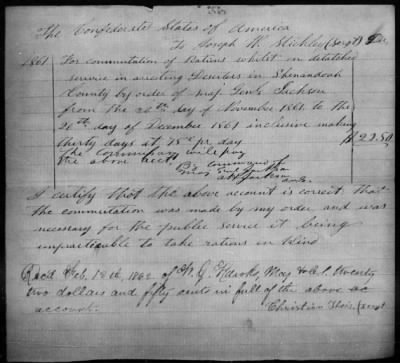 The Confederate States of America
To Joseph H. Stickley (Sergt) Dr.
1861 For commutation of Rations whilst on detatched
service in arresting Deserters in Shenandoah
County by order of Maj. Genl. Jackson
from the 20th day of November 1861 to the
20th day of December 1861 inclusive making
thirty days at 75c pr day $22.50
The Commissary will pay
the above acct. By command of
Maj Genl Jackson
I certify that the above account is correct that
the commutation was made by my order and was
necessary for the public service it being
impracticable to take rations in kind
Recd Feb. 18th, 1862 of W. J. Hawks, Maj & C.S. twenty
two dollars and fifty cents in full of the above ac
account.
Christian (Sergt